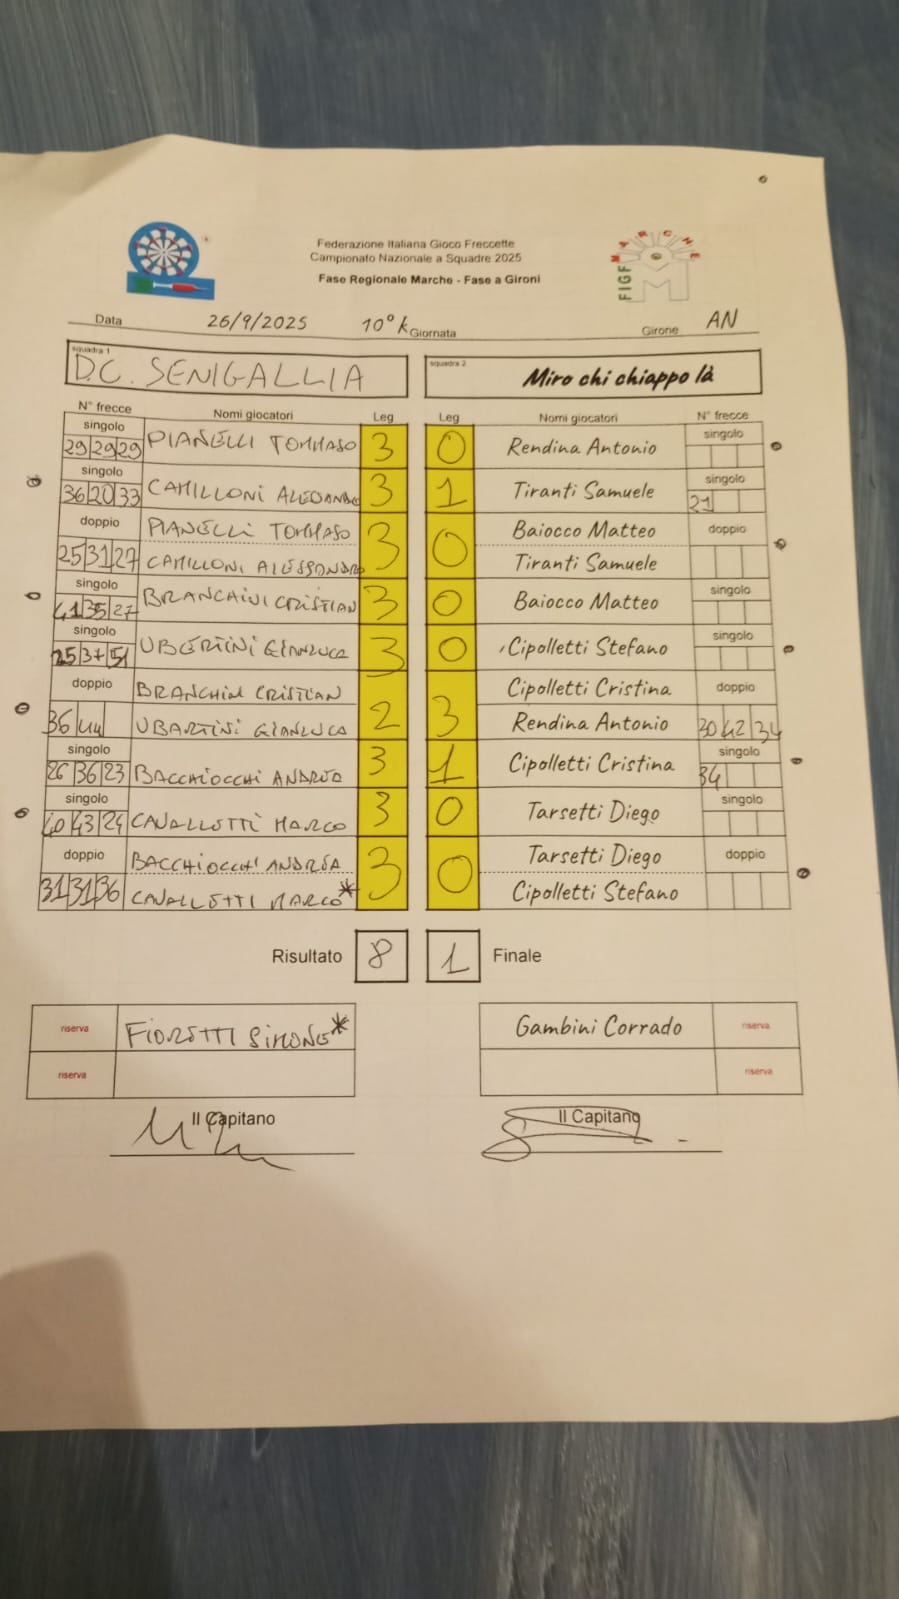 Federazione Italiana Gioco Freccette
Campionato Nazionale a Squadre 2025
Fase Regionale Marche - Fase a Gironi
MARCHE
FIGF M
Data 26/9/2025 10° Giornata Girone AN
squadra 1 D.C. SENIGALLIA squadra 2 Miro chi chiappo là
N° frecce Nomi giocatori Leg Leg Nomi giocatori N° frecce
singolo singolo
29 29 29 PIANELLI TOMMASO 3 0 Rendina Antonio
singolo singolo
36 20 33 CAMILLONI 3 1 Tiranti Samuele 21
doppio PIANELLI TOMMASO 3 0 Baiocco Matteo doppio
25 31 27 CAMILLONI ALESSANDRO Tiranti Samuele
singolo singolo
41 35 27 BRANCHINI CRISTIAN 3 0 Baiocco Matteo
singolo singolo
25 37 51 UBERTINI GIANLUCA 3 0 Cipolletti Stefano
doppio BRANCHINI CRISTIAN 2 3 Cipolletti Cristina doppio
36 44 UBARTINI GIANLUCA Rendina Antonio 30 42 34
singolo singolo
26 36 23 BACCHIOCCHI ANDREA 3 1 Cipolletti Cristina 34
singolo singolo
40 43 24 CAVALLETTI MARCO 3 0 Tarsetti Diego
doppio BACCHIOCCHI ANDREA 3 0 Tarsetti Diego doppio
31 31 36 CAVALLETTI MARCO* Cipolletti Stefano
Risultato 8 1 Finale
riserva FIORETTI SIMONE* Gambini Corrado riserva
riserva riserva
Il Capitano Il Capitano